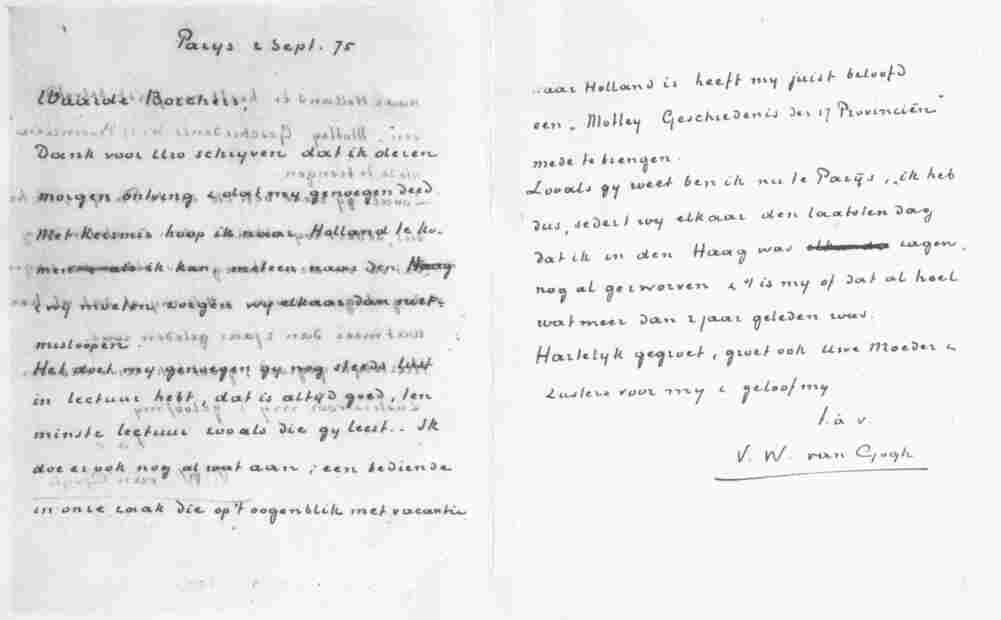 Parys 2 Sept. 75
Waarde Borchers,
Dank voor Uw schryven dat ik dezen
morgen ontving & dat my genoegen deed
Met Kersmis hoop ik naar Holland te ko-
men als ik kan, meteen naar den Haag
& wy moeten zorgen wy elkaar dan niet
misloopen.
Het doet my genoegen gy nog steeds lust
in lectuur hebt, dat is altyd goed, ten
minste lectuur zooals die gy leest.. Ik
doe er ook nog al wat aan; een bediende
in onze zaak die op 't oogenblik met vacantie
naar Holland is heeft my juist beloofd
een „Motley Geschiedenis der 17 Provinciën"
mede te brengen.
Zooals gy weet ben ik nu te Parÿs, ik heb
dus, sedert wy elkaar den laatsten dag
dat ik in den Haag was zagen,
nog al gezworven & 't is my of dat al heel
wat meer dan 2 jaar geleden was.
Hartelyk gegroet, groet ook Uwe Moeder &
Zusters voor my & geloof my
t. à v.
V. W. van Gogh